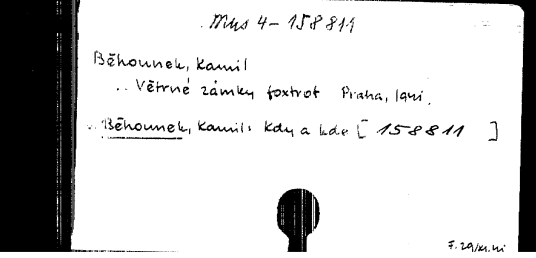 Mus 4-158811
Běhounek, Kamil
.. Větrné zámky foxtrot Praha, 1941.
.. Běhounek, Kamil: Kdy a kde [158811]